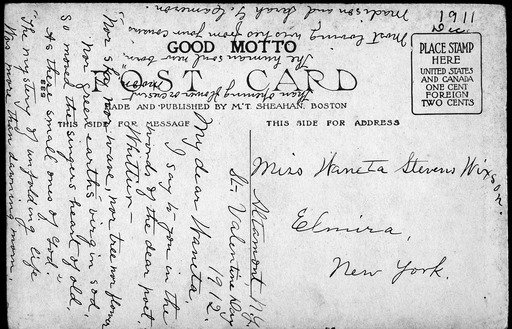 1911
Dec
GOOD MOTTO
POST CARD
MADE AND PUBLISHED BY M.T. SHEAHAN, BOSTON
THIS SIDE FOR MESSAGE
THIS SIDE FOR ADDRESS
PLACE STAMP
HERE
UNITED STATES
AND CANADA
ONE CENT
FOREIGN
TWO CENTS
Miss Waneta Stevens Wixson.
Elmira,
New York.
Altamont, N.Y.
St. Valentine Day
1912.
My dear Waneta,
I say to you in the
words of the dear poet,
Whittier –
"Nor sky, nor wave, nor tree nor flower
Nor green earth's virgin sod,
So moved the singers heart of old,
As these small ones of God."
"The mystery of unfolding life
Was more than dawning morn,
Than opening flower or crescent
moon
The human soul new born."
Most loving wishes from your cousins
Madison and Sarah G. Cameron.
633